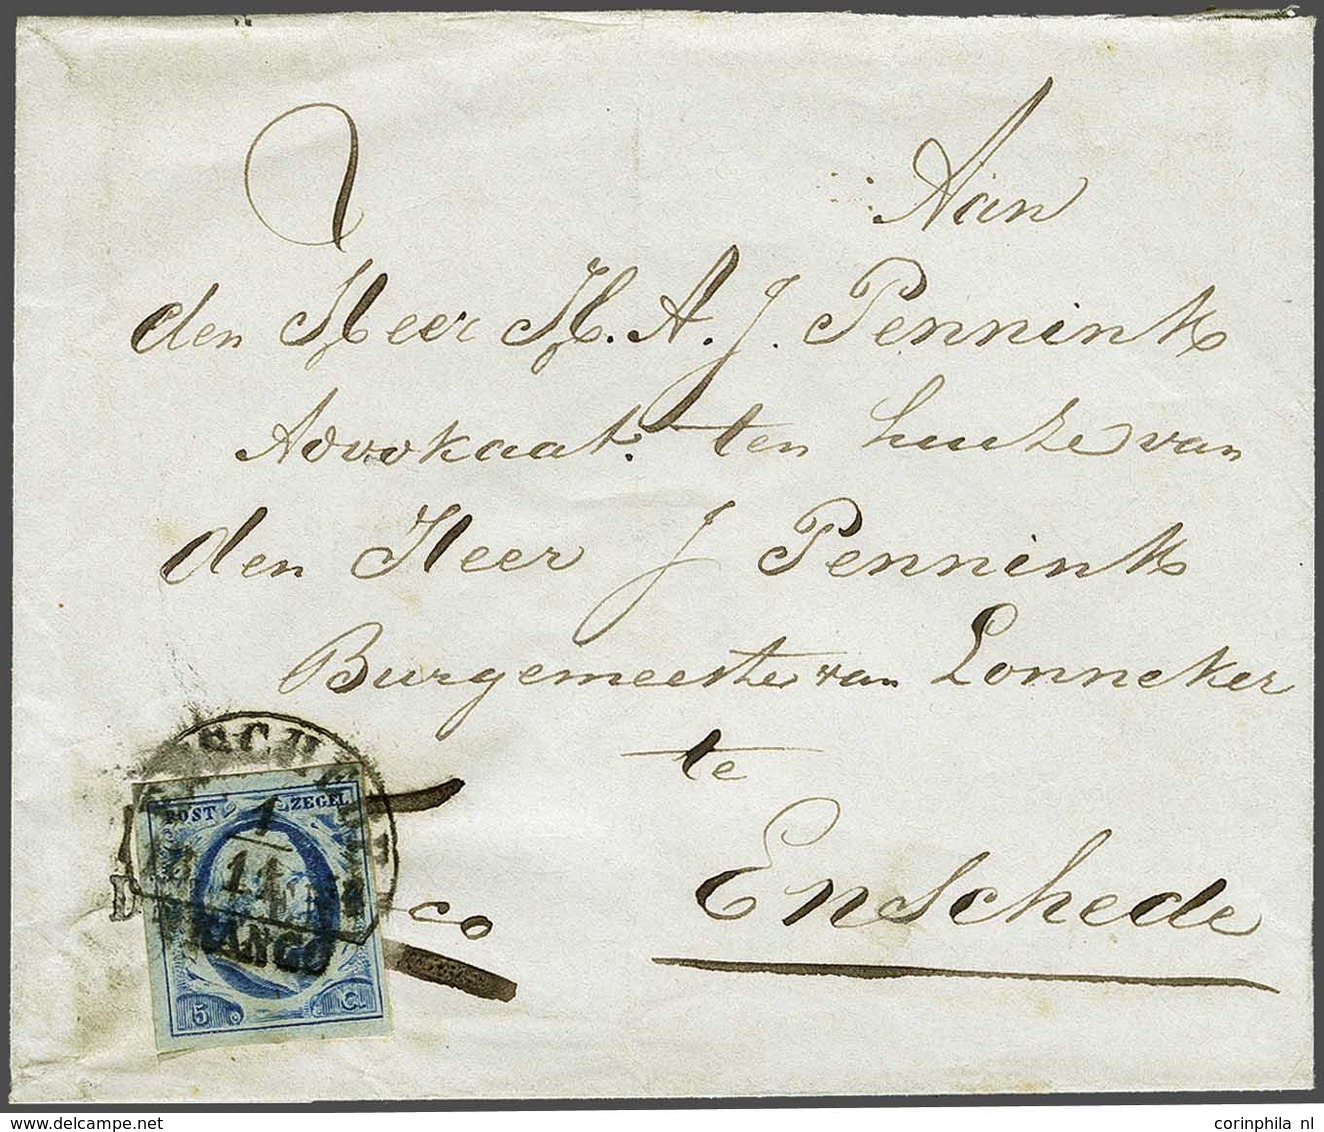 Aan
den Heer H. A. J. Pennink
Advokaat ten huize van
den Heer J Pennink
Burgemeester van Lonneker
te
Enschede
POST ZEGEL
1
11
FRANCO
co
5 C.
corinphila nl